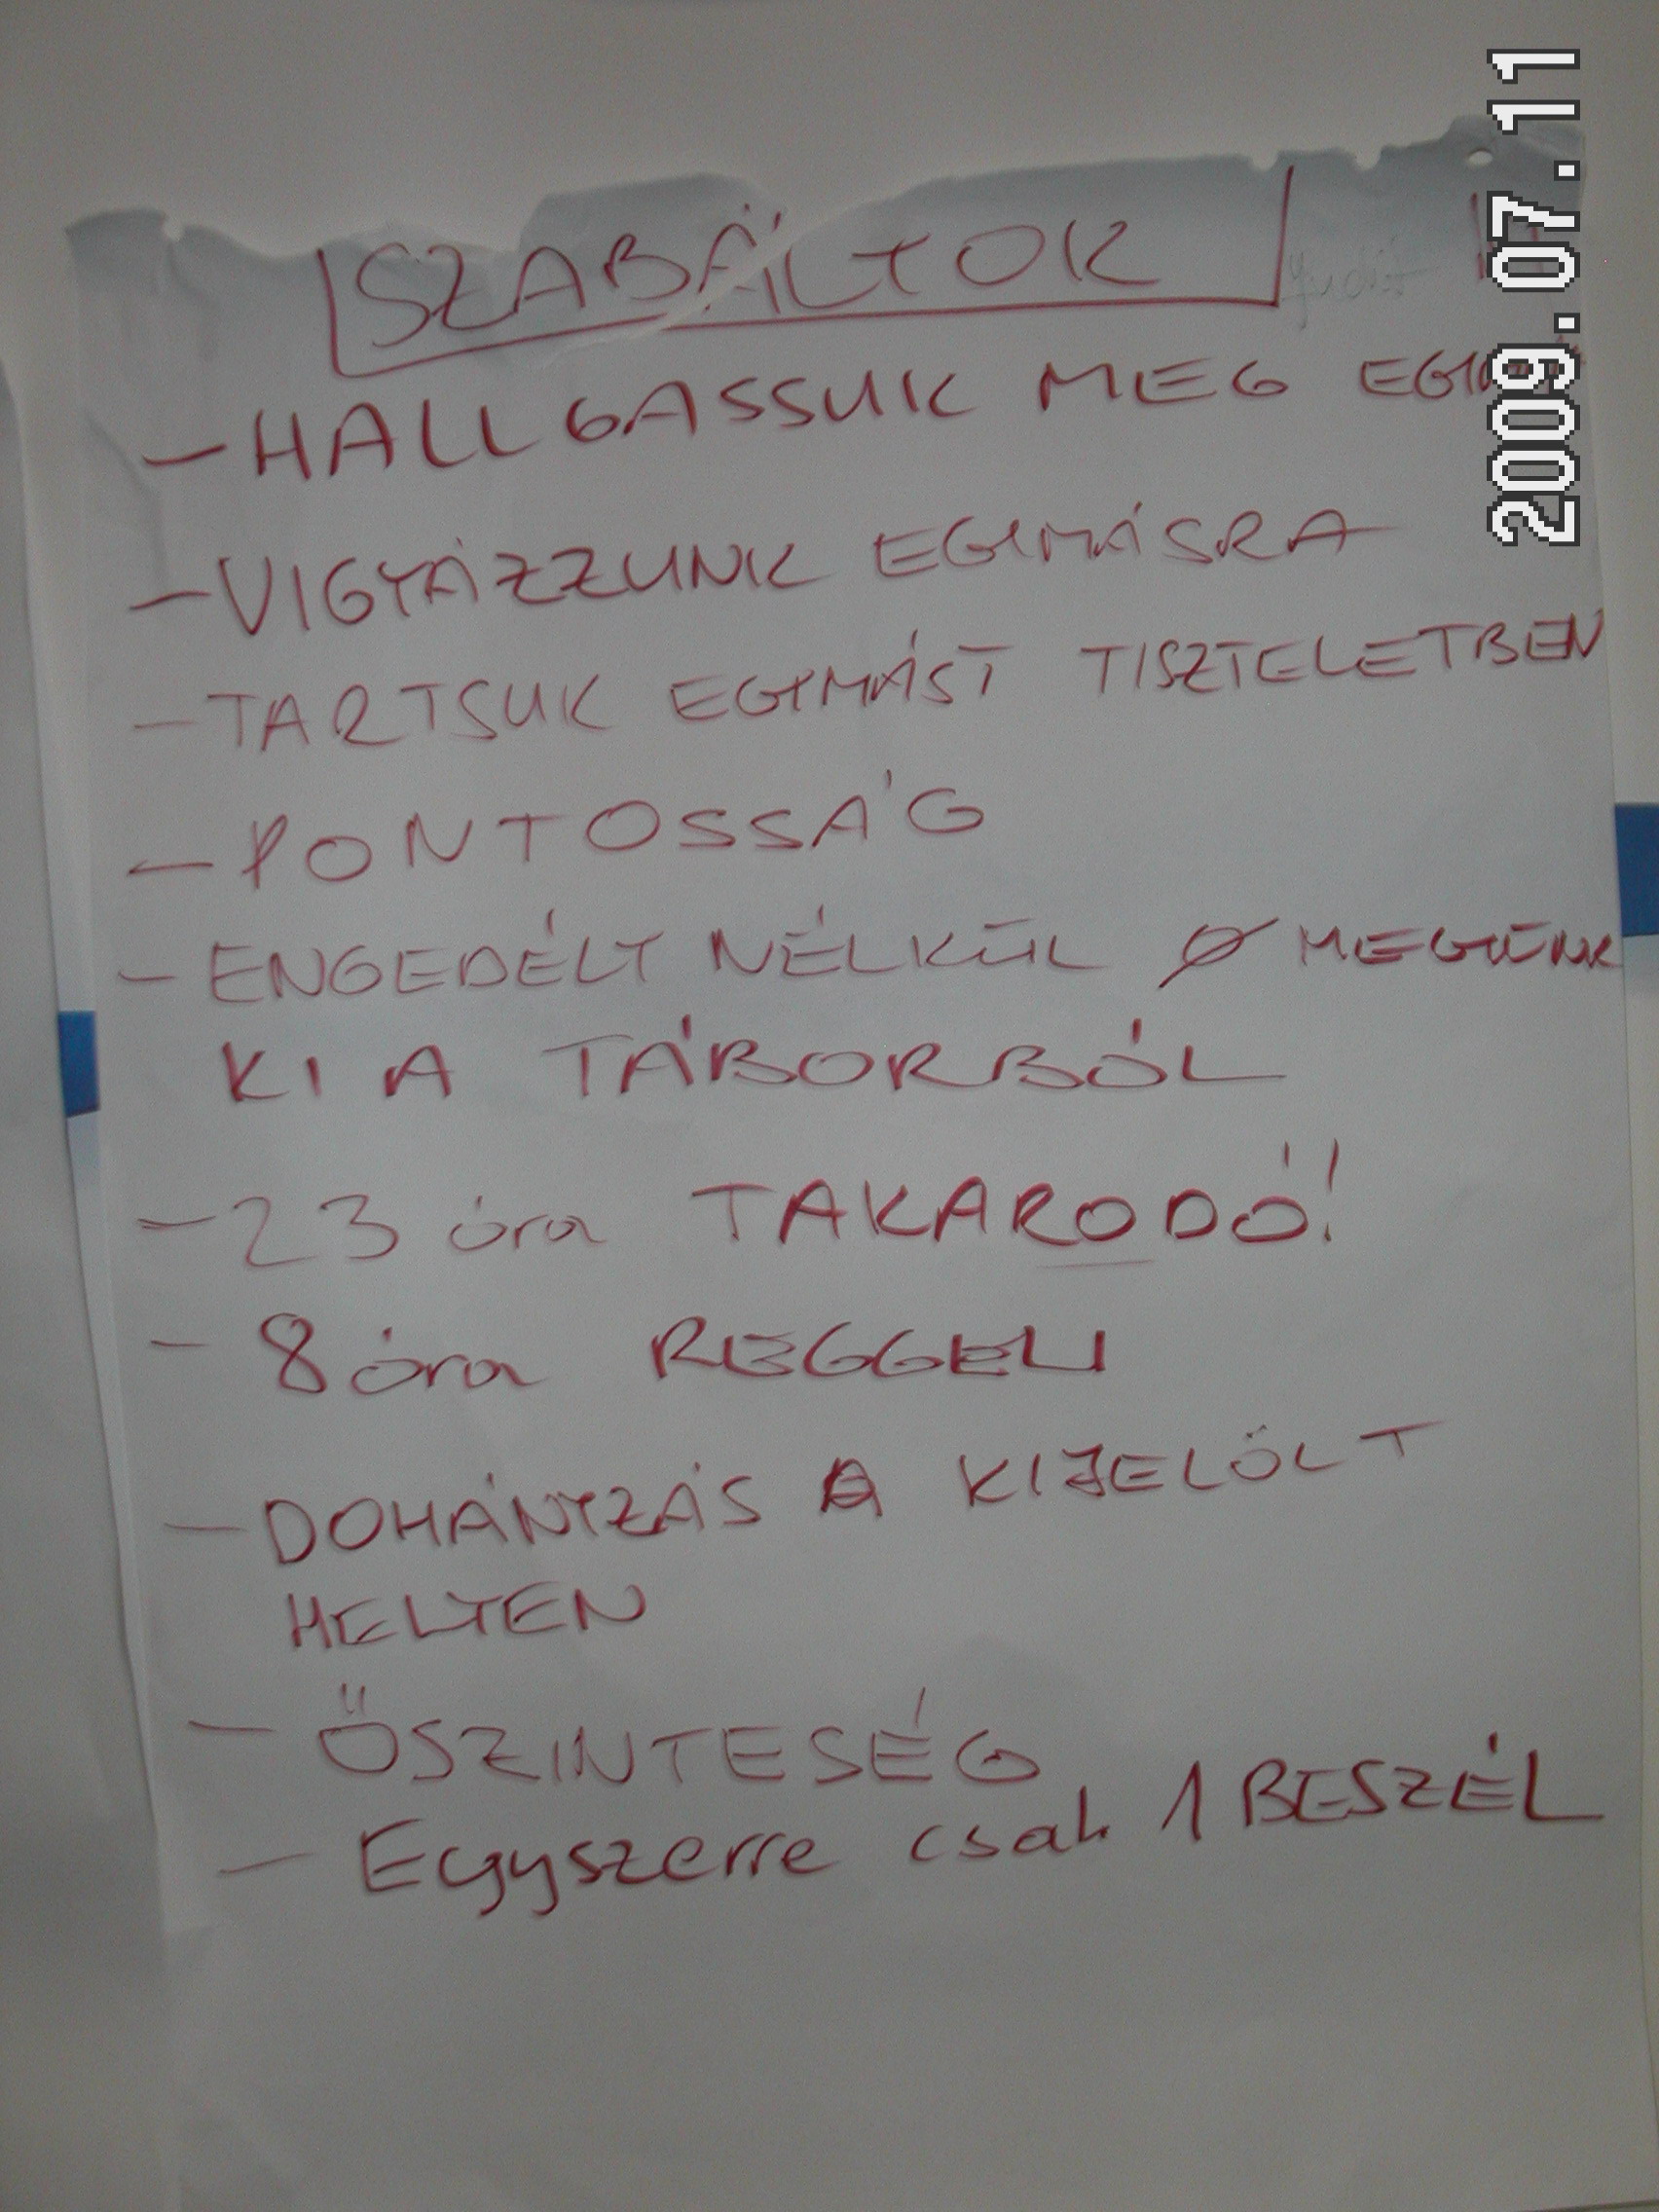 SZABÁLYOK
- HALLGASSUK MEG
- VIGYÁZZUNK EGYMÁSRA
- TARTSUK EGYMÁST TISZTELETBEN
- PONTOSSÁG
- ENGEDÉLY NÉLKÜL Ø MEGYÜNK
KI A TÁBORBÓL
- 23 óra TAKARODÓ!
- 8 óra REGGELI
- DOHÁNYZÁS A KIJELÖLT
HELYEN
- ŐSZINTESÉG
- Egyszerre csak 1 BESZÉL
2009.07.11